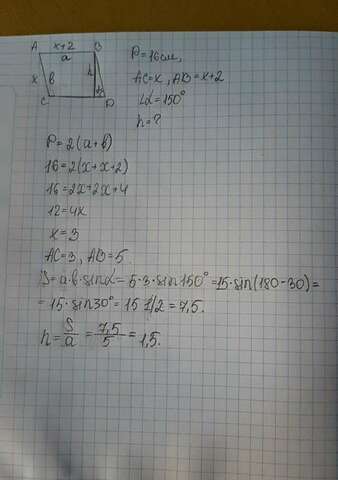 A x+2 B
a
x b h h
C D
P=16см,
AC=x, AB=x+2
∠α=150°
h=?
P=2(a+b)
16=2(x+x+2)
16=2x+2x+4
12=4x
x=3
AC=3, AB=5
S=a·b·sinα=5·3·sin150°=15·sin(180-30)=
=15·sin30°=15 1/2=7,5.
h=S/a=7,5/5=1,5.